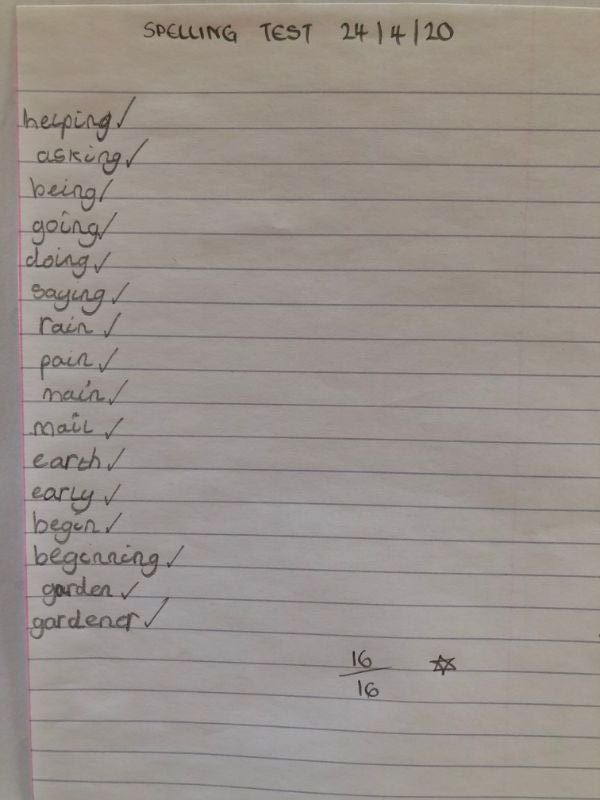 SPELLING TEST 24/4/20
helping ✓
asking ✓
being ✓
going ✓
doing ✓
saying ✓
rain ✓
pain ✓
main ✓
mail ✓
earth ✓
early ✓
begin ✓
beginning ✓
garden ✓
gardener ✓
16
16